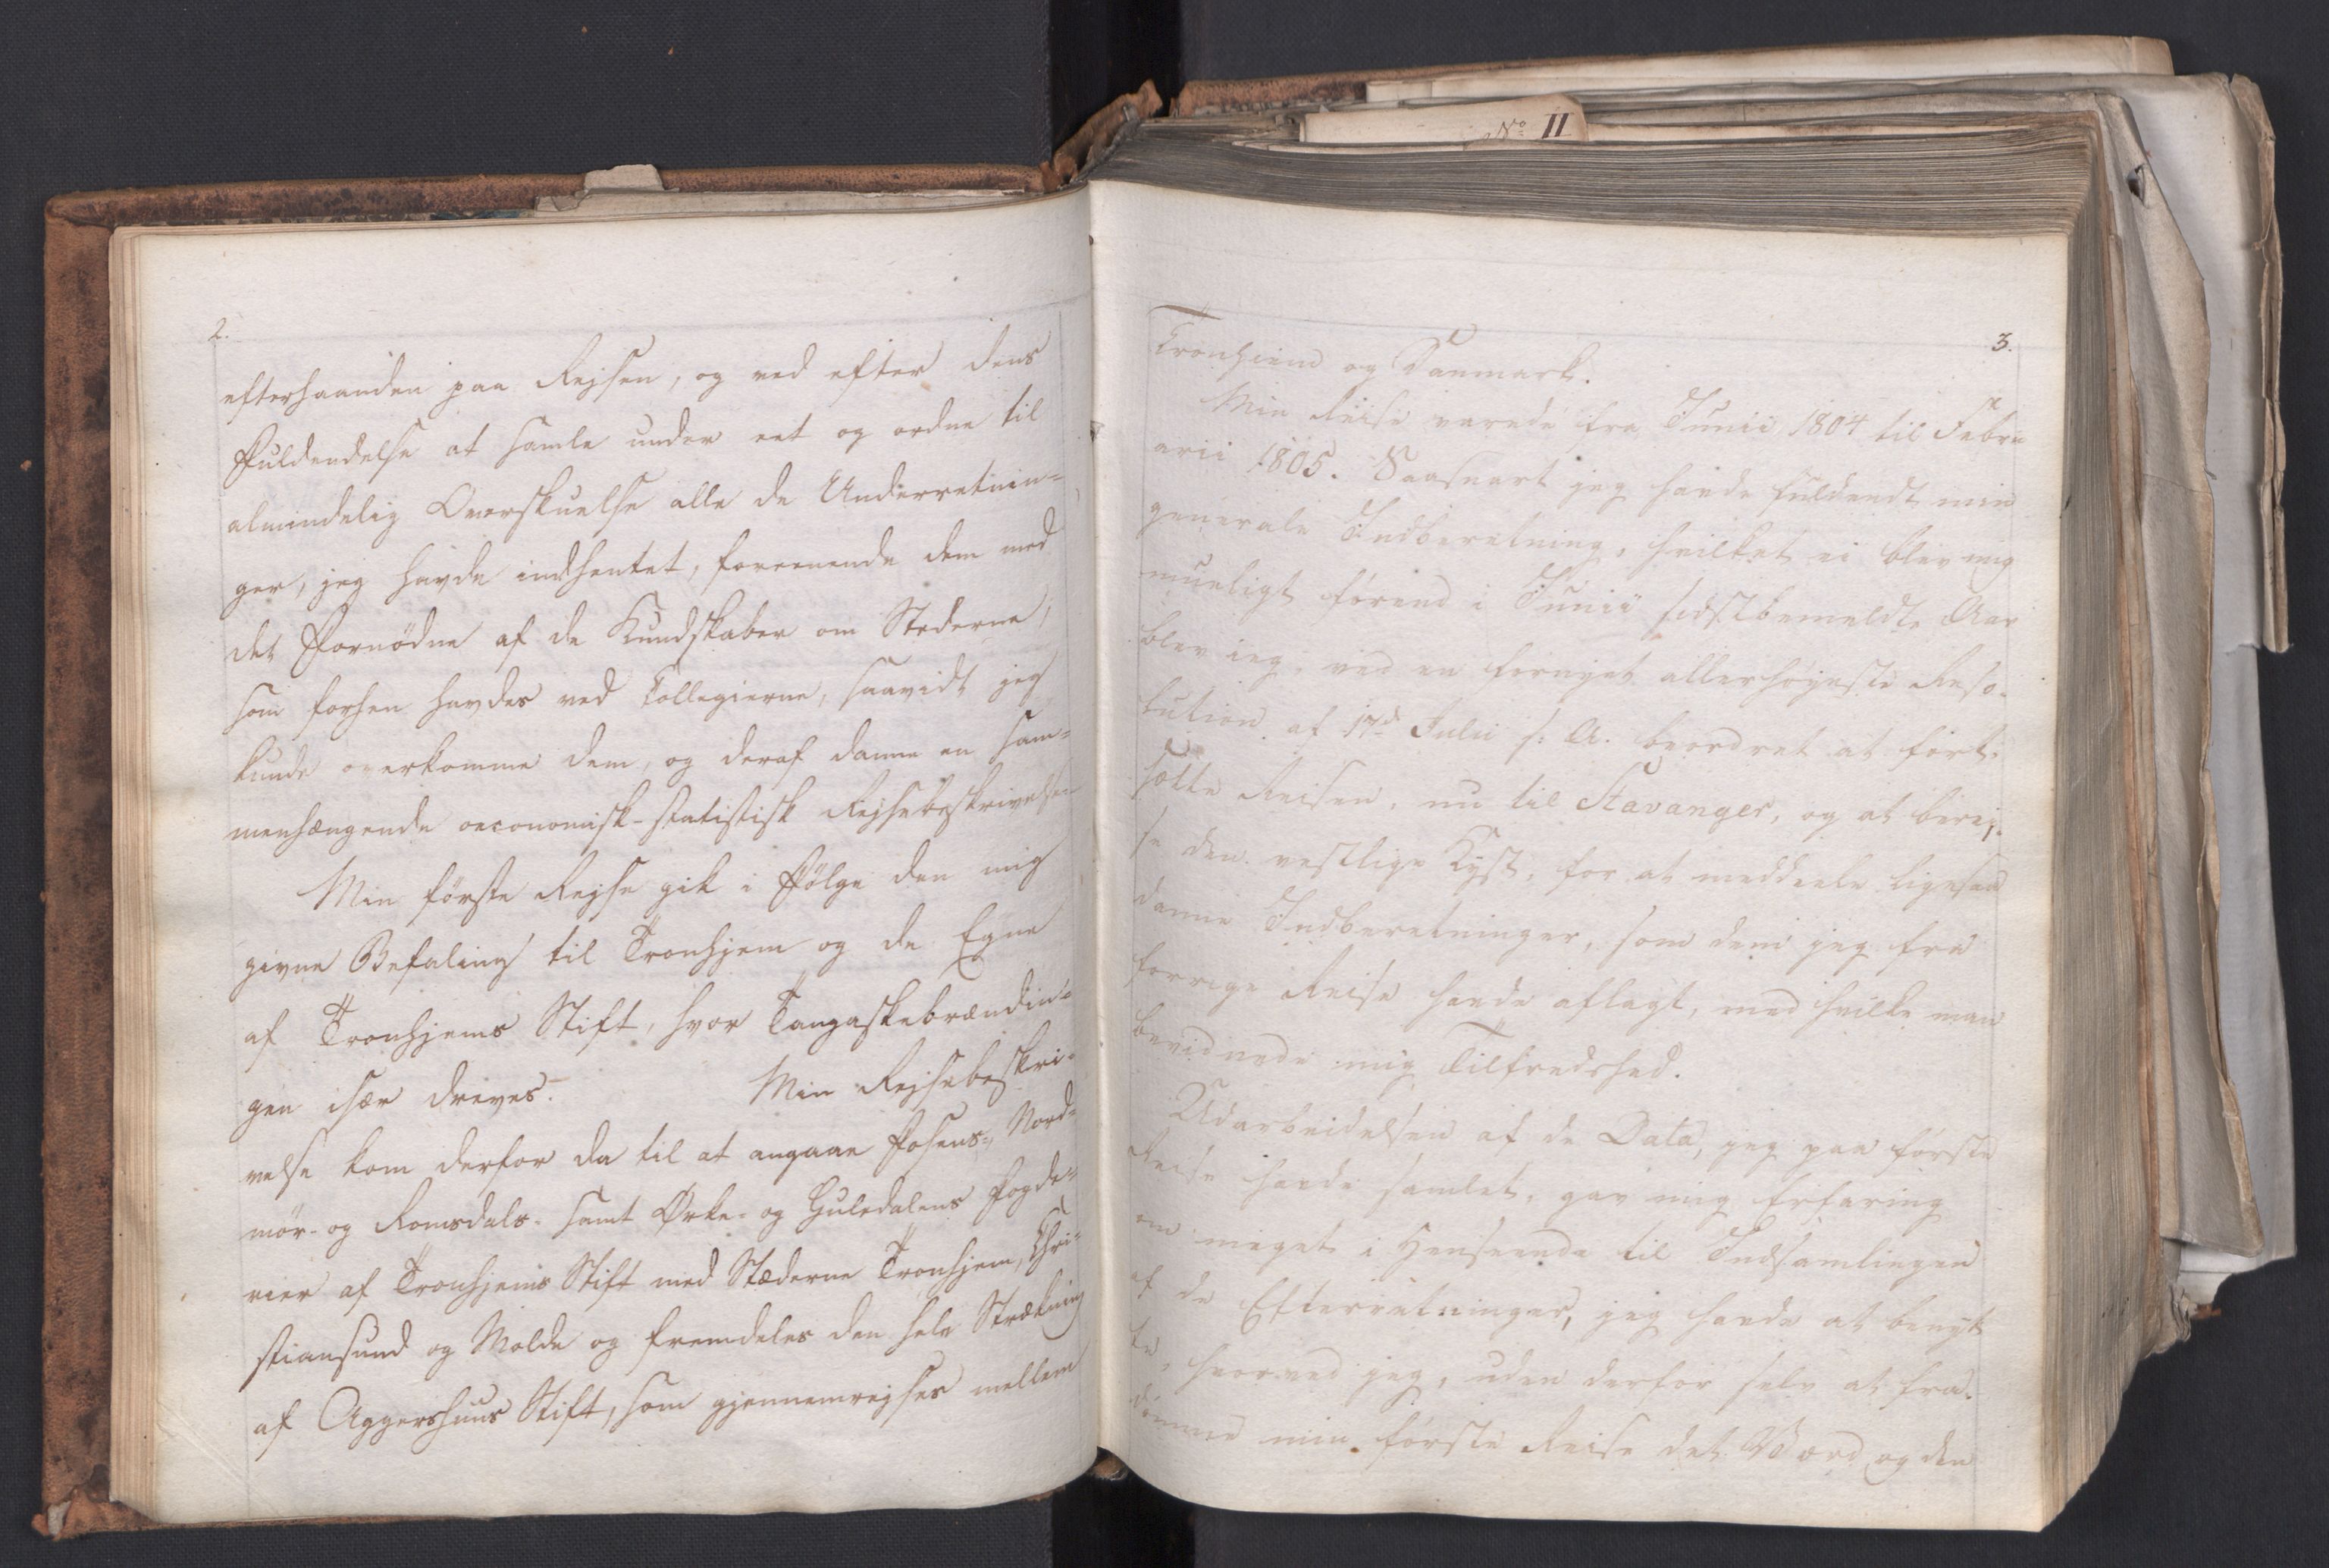 No II
2.
efterhaanden paa Rejsen, og ved efter dens
Fuldendelse at samle under eet og ordne til
almindelig Overskuelse alle de Underretnin=
ger, jeg havde indhentet, foreenende dem med
det Fornødne af de Kundskaber om Stederne,
som forhen havdes ved Collegierne, saavidt jeg
kunde overkomme dem, og deraf danne en sam=
menhængende oeconomisk-statistisk Rejsebeskrivelse
Min første Rejse gik i Følge den mig
givne Befaling til Tronhjem og de Egne
af Tronhjems Stift, hvor Tangaskebrændin=
gen især drives. Min Rejsebeskri=
velse kom derfor da til at angaae Fosens-, Nord=
mør- og Romsdals- samt Ørke- og Guledalens Fogde=
rier af Tronhjems Stift med Stæderne Tronhjem, Chri=
stiansund og Molde og fremdeles den hele Strækning
af Aggershuus Stift, som gjennemrejses mellem
3.
Tronhiem og Danmark.
Min Reise varede fra Junii 1804 til Febru
arii 1805. Saasnart jeg havde fuldendt min
generale Indberetning, hvilket ei blev mig
mueligt førend i Junii sidstbemeldte Aar
blev ieg, ved en fornyet allerhøyeste Reso-
lution af 17d Julii s: A. beordret at fort-
sætte Reisen, nu til Stavanger, og at berej-
se den vestlige Kyst, for at meddeele ligesaa
danne Indberetninger, som dem jeg fra
forrige Reise havde aflagt, med hvilke man
bevidnede mig Tilfredshed.
Udarbeidelsen af de Data, jeg paa første
Reise havde samlet, gav mig Erfaring
om meget i Henseende til Indsamlingen
af de Efterretninger, jeg havde at benyt
te, hvorved jeg, uden derfor selv at fra-
dømme min første Reise det Værd og den